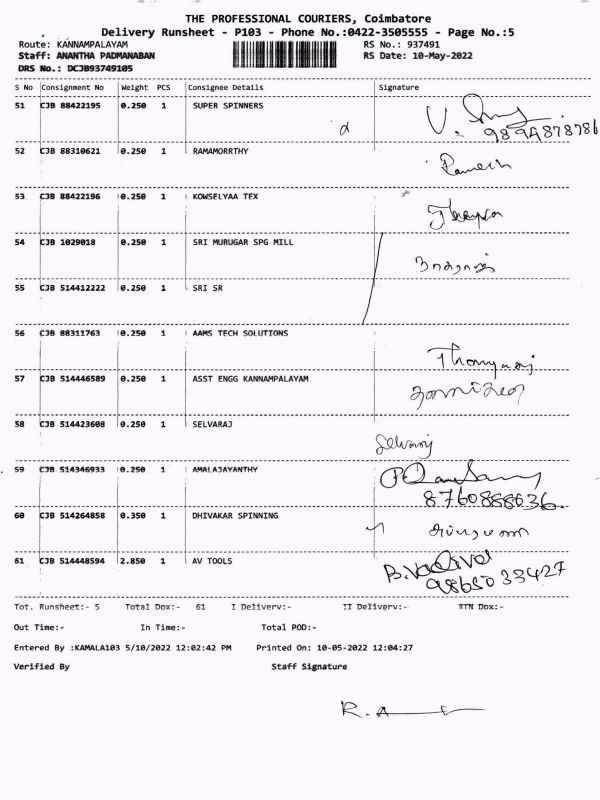 THE PROFESSIONAL COURIERS, Coimbatore
Delivery Runsheet - P103 - Phone No.:0422-3505555 - Page No.:5
Route: KANNAMPALAYAM RS No.: 937491
Staff: ANANTHA PADMANABAN RS Date: 10-May-2022
DRS No.: DCJB93749105
S No Consignment No Weight PCS Consignee Details Signature
51 CJB 88422195 0.250 1 SUPER SPINNERS
9894878786
52 CJB 88310621 0.250 1 RAMAMORRTHY
Ramesh
53 CJB 88422196 0.250 1 KOWSELYAA TEX
54 CJB 1029018 0.250 1 SRI MURUGAR SPG MILL
55 CJB 514412222 0.250 1 SRI SR
56 CJB 88311763 0.250 1 AAMS TECH SOLUTIONS
57 CJB 514446589 0.250 1 ASST ENGG KANNAMPALAYAM
58 CJB 514423608 0.250 1 SELVARAJ
Selvaraj
59 CJB 514346933 0.250 1 AMALAJAYANTHY
8760888636
60 CJB 514264858 0.350 1 DHIVAKAR SPINNING
61 CJB 514448594 2.850 1 AV TOOLS
B.Vadivel
9865033427
Tot. Runsheet:- 5 Total Dox:- 61 I Delivery:- II Delivery:- RTN Dox:-
Out Time:- In Time:- Total POD:-
Entered By :KAMALA103 5/10/2022 12:02:42 PM Printed On: 10-05-2022 12:04:27
Verified By Staff Signature